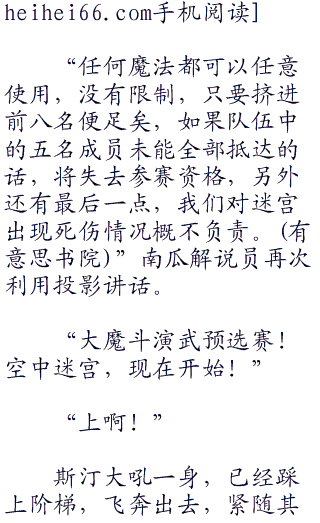 heihei66.com手机阅读]
“任何魔法都可以任意
使用，没有限制，只要挤进
前八名便足矣，如果队伍中
的五名成员未能全部抵达的
话，将失去参赛资格，另外
还有最后一点，我们对迷宫
出现死伤情况概不负责。(有
意思书院)”南瓜解说员再次
利用投影讲话。
“大魔斗演武预选赛！
空中迷宫，现在开始！”
“上啊！”
斯汀大吼一身，已经踩
上阶梯，飞奔出去，紧随其